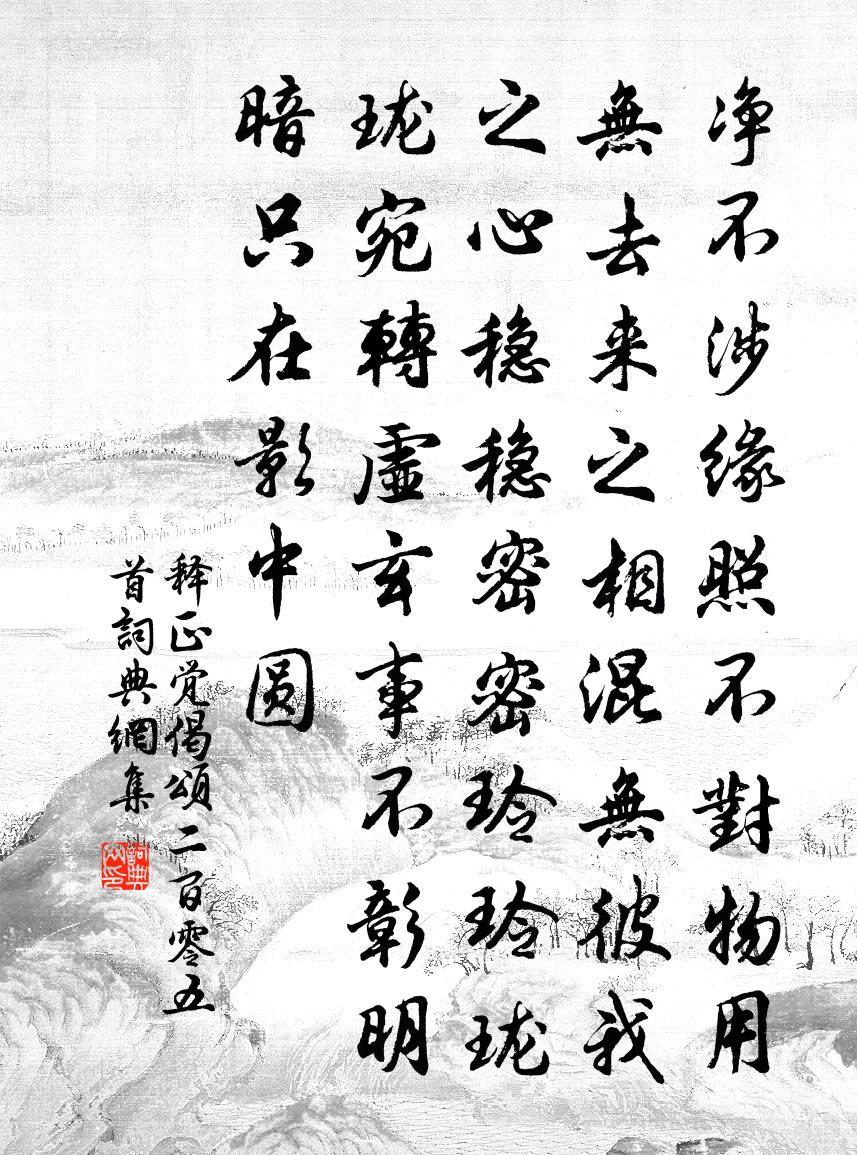 净不涉缘照不對物用
無去来之相混無彼我
之心稳稳密密玲玲珑
珑宛轉虚玄事不彰明
暗只在影中圆
释正觉偈頌二百零五
首詞典網集